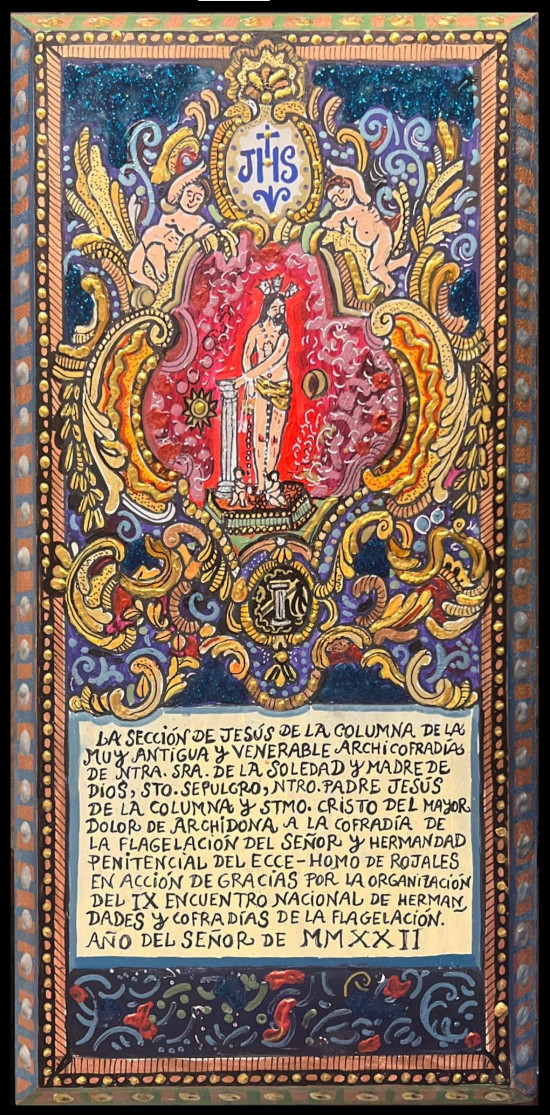 JHS
LA SECCIÓN DE JESÚS DE LA COLUMNA DE LA
MUY ANTIGUA Y VENERABLE ARCHICOFRADÍA
DE NTRA. SRA. DE LA SOLEDAD Y MADRE DE
DIOS, STO. SEPULCRO, NTRO. PADRE JESÚS
DE LA COLUMNA Y STMO. CRISTO DEL MAYOR
DOLOR DE ARCHIDONA A LA COFRADÍA DE
LA FLAGELACIÓN DEL SEÑOR Y HERMANDAD
PENITENCIAL DEL ECCE-HOMO DE ROJALES
EN ACCIÓN DE GRACIAS POR LA ORGANIZACIÓN
DEL IX ENCUENTRO NACIONAL DE HERMAN_
DADES Y COFRADÍAS DE LA FLAGELACIÓN.
AÑO DEL SEÑOR DE MMXXII